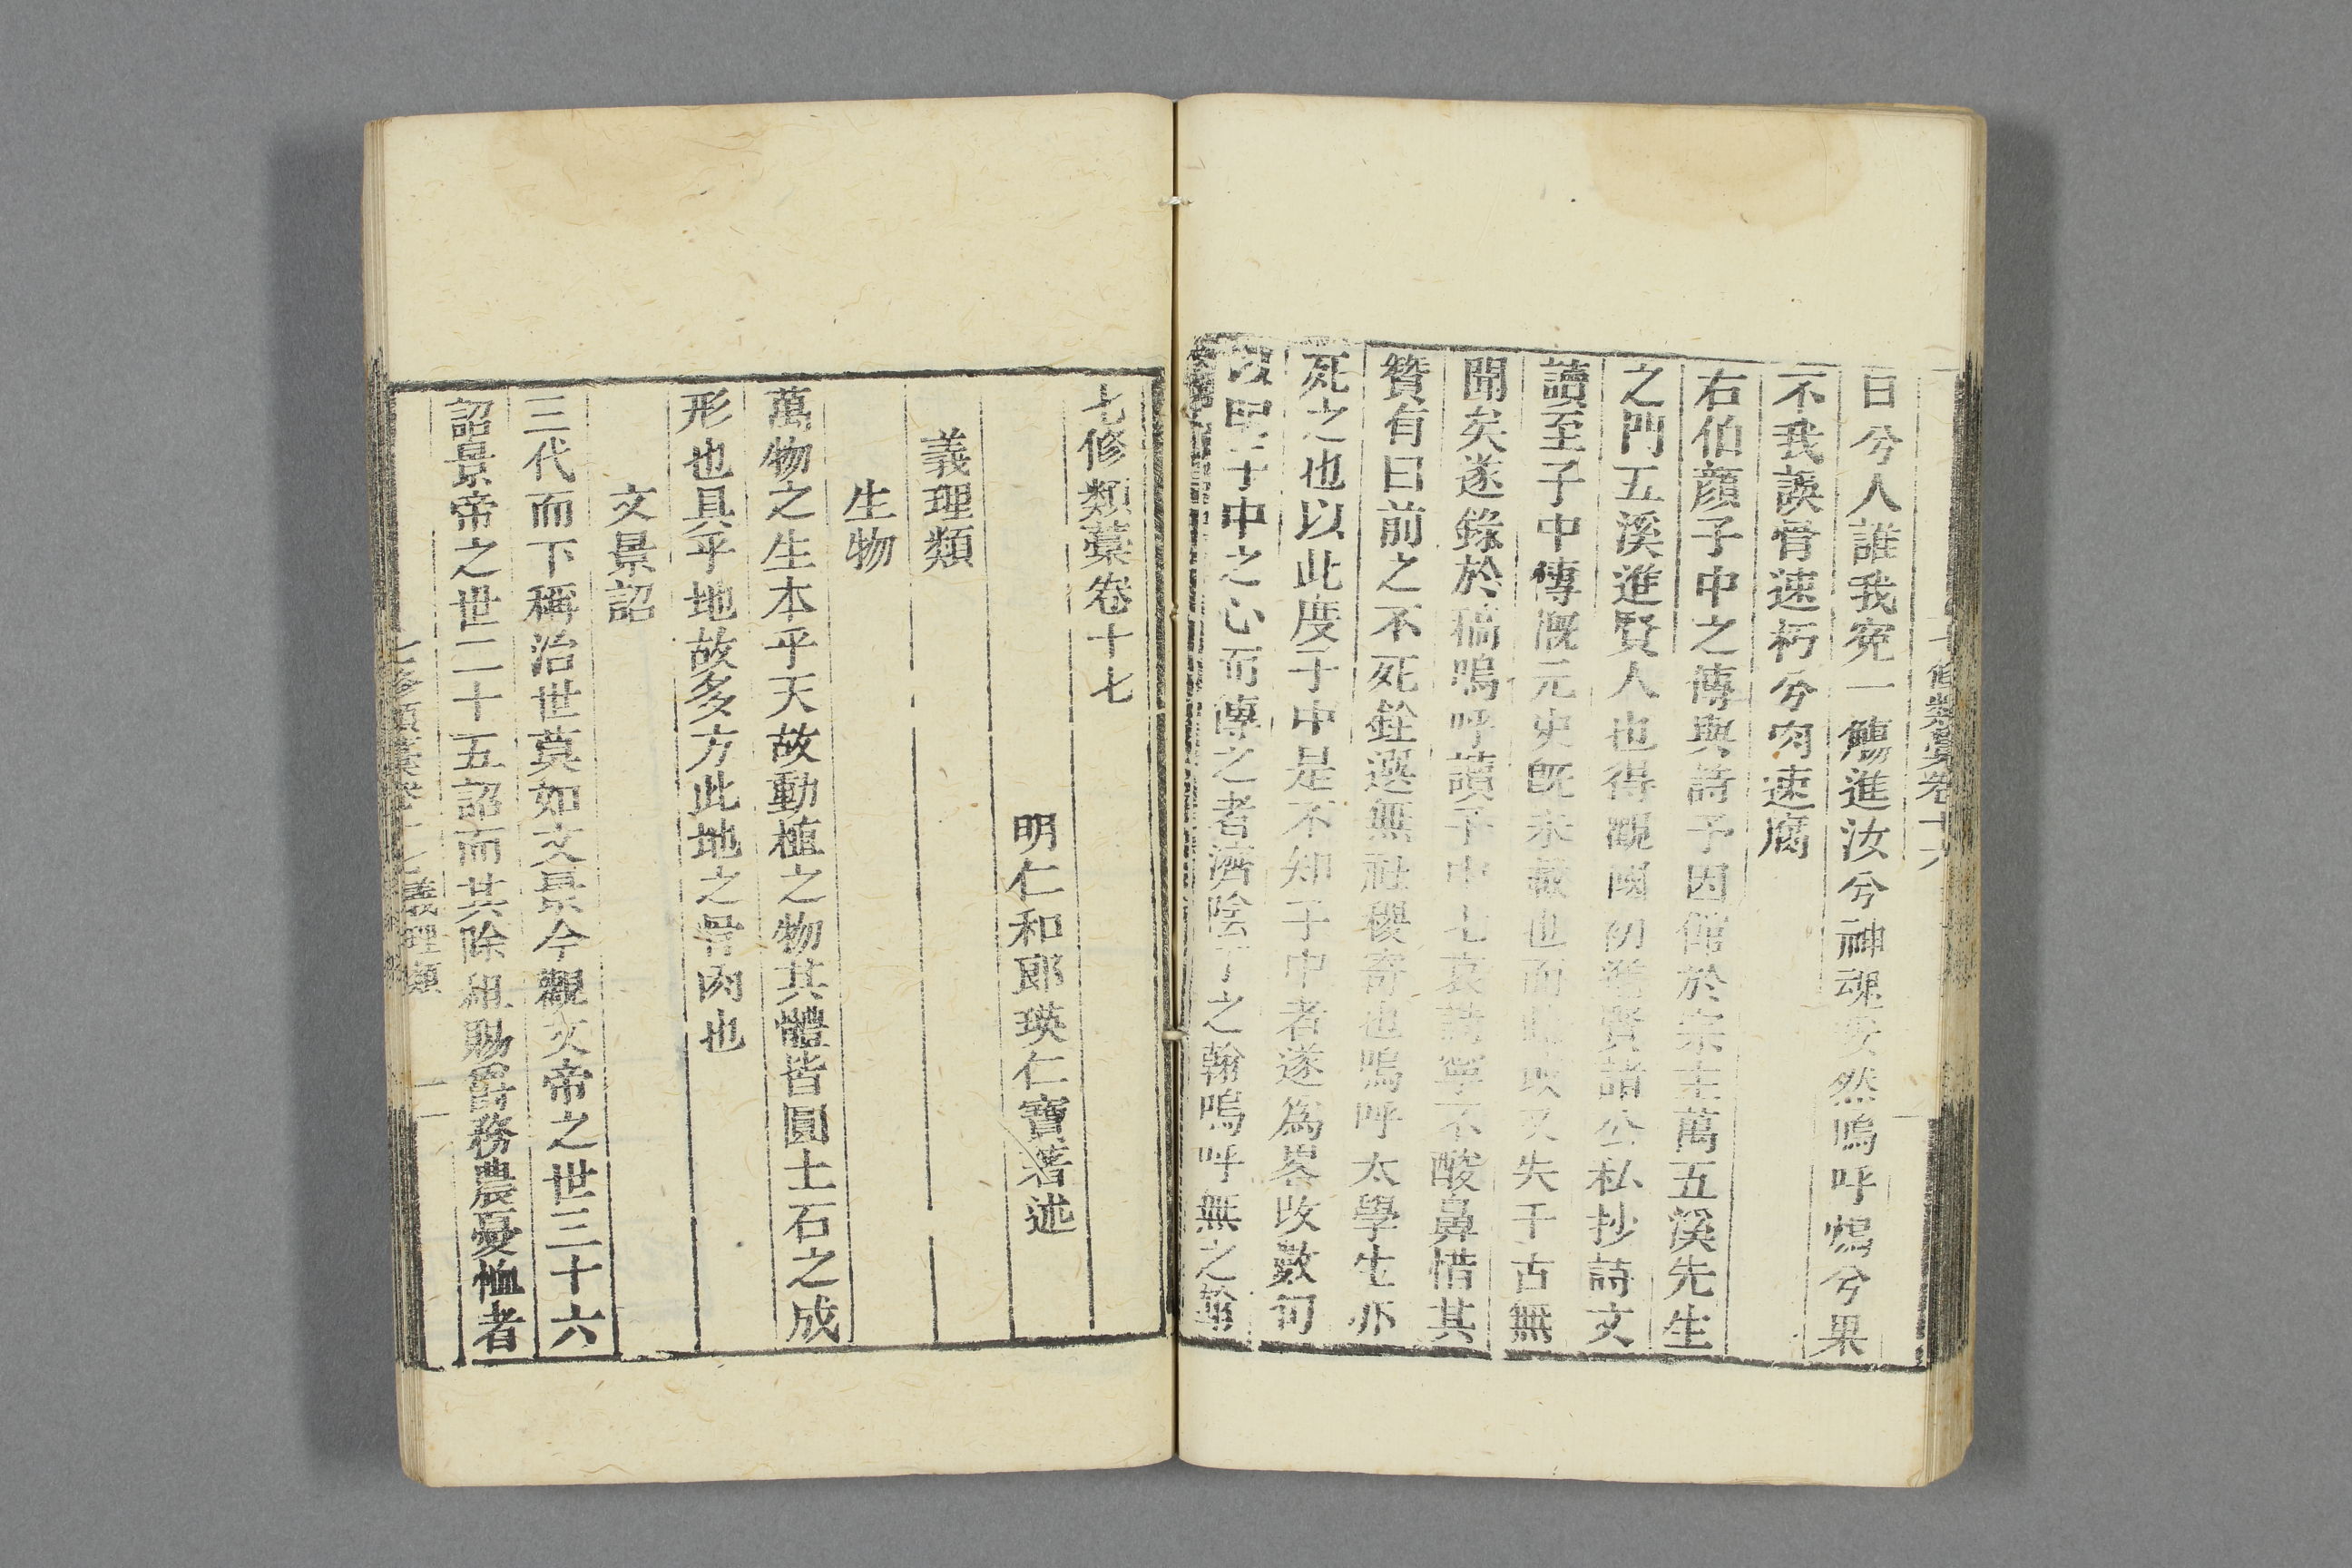 日兮人誰我寃一觴進汝兮神魂安然嗚呼煢兮果
不我誤骨速朽兮肉速腐
右伯顔子中之傳與詩予因館於宗主萬五溪先生
之門五溪進賢人也得觀國初進賢諸公私抄詩文
讀至子中傳慨元史旣未載也而又失千古無
聞矣遂錄於稿嗚呼讀子中七哀詩寧不酸鼻惜其
贊有曰前之不死銓選無社稷寄也嗚呼太學生亦
死之也以此度子中是不知子中者遂爲畧改數句
子中之心而傳之者濟陰丁之翰嗚呼無之翰
七修類藁卷十六
七修類藁卷十七
明仁和郎瑛仁寶著述
義理類
生物
萬物之生本乎天故動植之物其體皆圓土石之成
形也具乎地故多方此地之骨肉也
文景詔
三代而下稱治世莫如文景今觀文帝之世三十六
詔景帝之世二十五詔而其除租賜爵務農憂恤者
七修類藁卷十七義理類
一